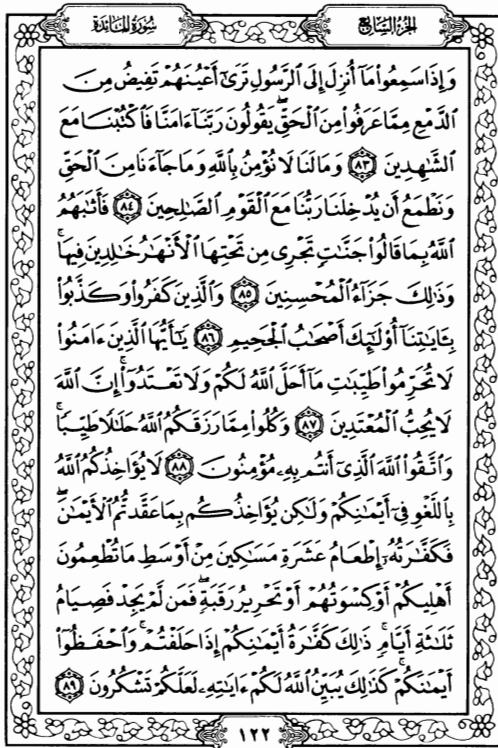 سورة المائدة
الجزء السابع
وَإِذَا سَمِعُوا۟ مَآ أُنزِلَ إِلَى ٱلرَّسُولِ تَرَىٰٓ أَعْيُنَهُمْ تَفِيضُ مِنَ
ٱلدَّمْعِ مِمَّا عَرَفُوا۟ مِنَ ٱلْحَقِّ ۖ يَقُولُونَ رَبَّنَآ ءَامَنَّا فَٱكْتُبْنَا مَعَ
ٱلشَّـٰهِدِينَ ٨٣ وَمَا لَنَا لَا نُؤْمِنُ بِٱللَّهِ وَمَا جَآءَنَا مِنَ ٱلْحَقِّ
وَنَطْمَعُ أَن يُدْخِلَنَا رَبُّنَا مَعَ ٱلْقَوْمِ ٱلصَّـٰلِحِينَ ٨٤ فَأَثَـٰبَهُمُ
ٱللَّهُ بِمَا قَالُوا۟ جَنَّـٰتٍ تَجْرِى مِن تَحْتِهَا ٱلْأَنْهَـٰرُ خَـٰلِدِينَ فِيهَا ۚ
وَذَٰلِكَ جَزَآءُ ٱلْمُحْسِنِينَ ٨٥ وَٱلَّذِينَ كَفَرُوا۟ وَكَذَّبُوا۟
بِـَٔايَـٰتِنَآ أُو۟لَـٰٓئِكَ أَصْحَـٰبُ ٱلْجَحِيمِ ٨٦ يَـٰٓأَيُّهَا ٱلَّذِينَ ءَامَنُوا۟
لَا تُحَرِّمُوا۟ طَيِّبَـٰتِ مَآ أَحَلَّ ٱللَّهُ لَكُمْ وَلَا تَعْتَدُوٓا۟ ۚ إِنَّ ٱللَّهَ
لَا يُحِبُّ ٱلْمُعْتَدِينَ ٨٧ وَكُلُوا۟ مِمَّا رَزَقَكُمُ ٱللَّهُ حَلَـٰلًا طَيِّبًا ۚ
وَٱتَّقُوا۟ ٱللَّهَ ٱلَّذِىٓ أَنتُم بِهِۦ مُؤْمِنُونَ ٨٨ لَا يُؤَاخِذُكُمُ ٱللَّهُ
بِٱللَّغْوِ فِىٓ أَيْمَـٰنِكُمْ وَلَـٰكِن يُؤَاخِذُكُم بِمَا عَقَّدتُّمُ ٱلْأَيْمَـٰنَ ۖ
فَكَفَّـٰرَتُهُۥٓ إِطْعَامُ عَشَرَةِ مَسَـٰكِينَ مِنْ أَوْسَطِ مَا تُطْعِمُونَ
أَهْلِيكُمْ أَوْ كِسْوَتُهُمْ أَوْ تَحْرِيرُ رَقَبَةٍ ۖ فَمَن لَّمْ يَجِدْ فَصِيَامُ
ثَلَـٰثَةِ أَيَّامٍ ۚ ذَٰلِكَ كَفَّـٰرَةُ أَيْمَـٰنِكُمْ إِذَا حَلَفْتُمْ ۚ وَٱحْفَظُوٓا۟
أَيْمَـٰنَكُمْ ۚ كَذَٰلِكَ يُبَيِّنُ ٱللَّهُ لَكُمْ ءَايَـٰتِهِۦ لَعَلَّكُمْ تَشْكُرُونَ ٨٩
١٢٢